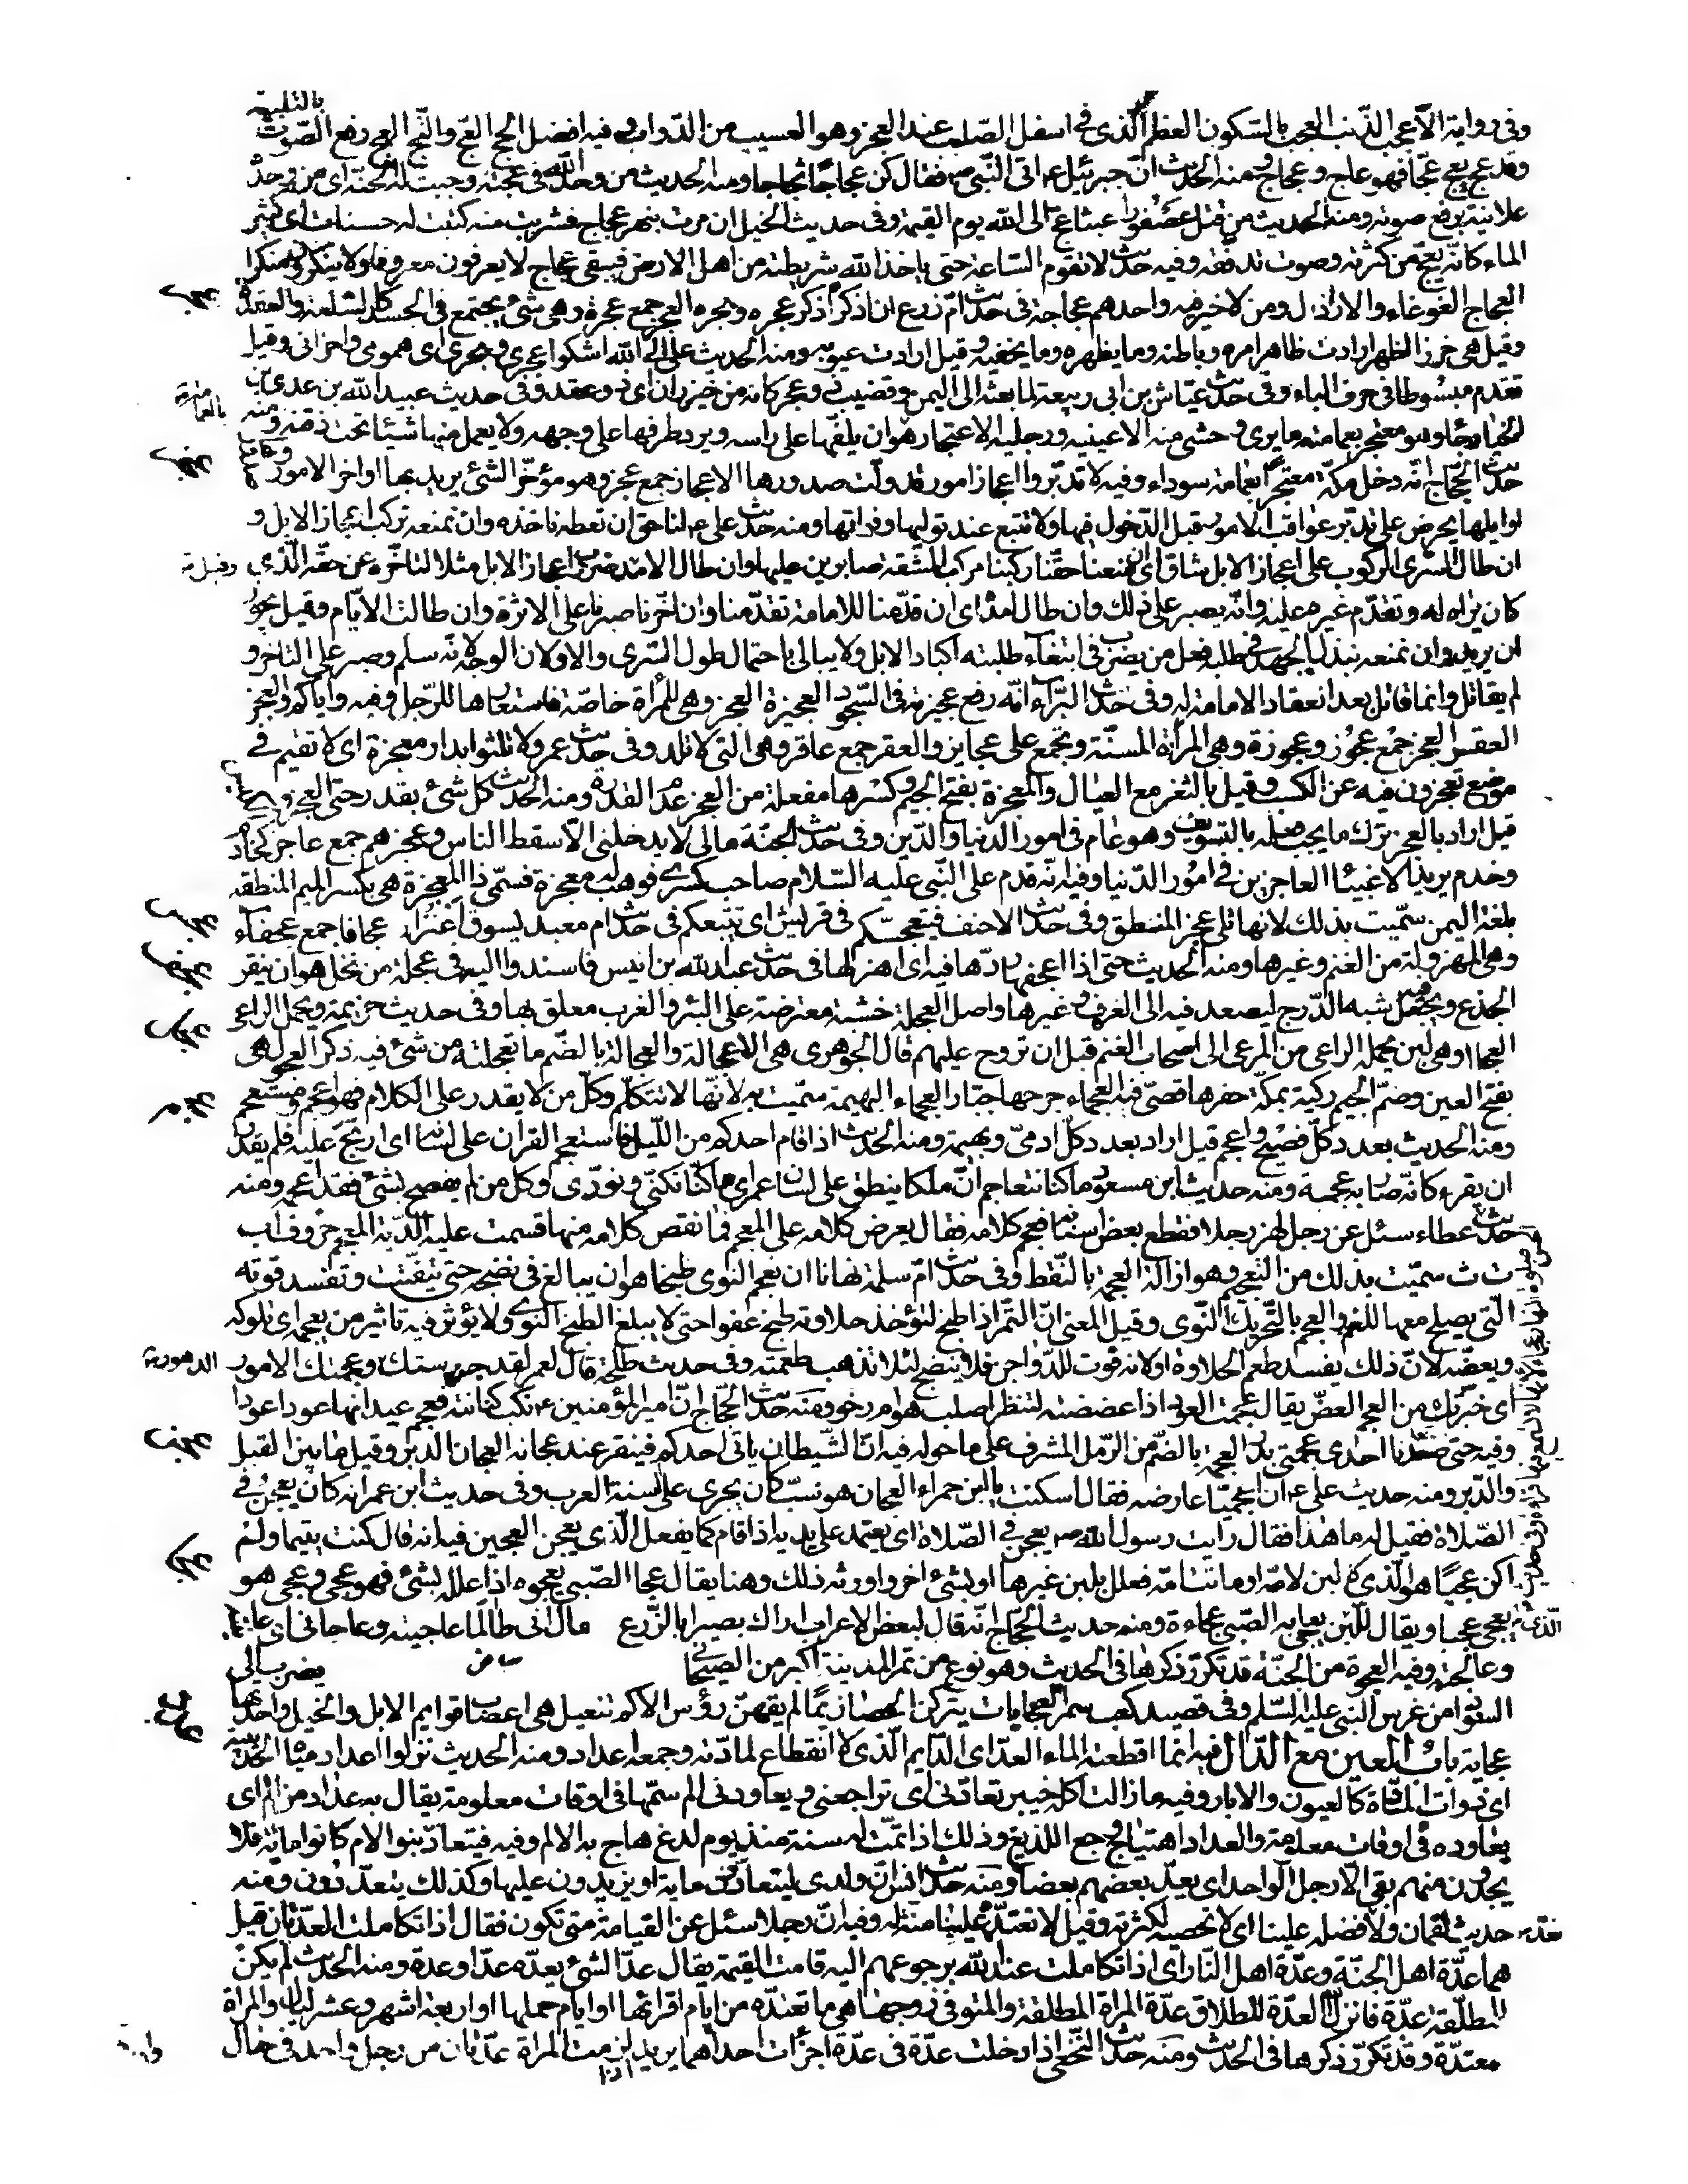 بالتلبية
وفى رواية الا عجب الذنب العجب بالسكون العظم الذى فى اسفل الصلب عند العجز وهو العسيب من الدواب وفيه افضل الحج العج والثج العج رفع الصوت
وقد عج يعج عجا فهو عاج وعجاج ومنه الحديث ان جبرئيل ع اتى النبى ص فقال كن عجاجا ثجاجا ومنه الحديث من وحد الله فى عجته وجبت له الجنة اى من وحده
علانية برفع صوته ومنه الحديث من قتل عصفورا عبثا عج الى الله يوم القيمة وفى حديث الخيل ان مرت بنهر عجاج فشربت منه كتبت له حسنات اى كثير
الماء كانه يعج من كثرته وصوت تدفقه وفيه حديث لا تقوم الساعة حتى ياخذ الله شريطته من اهل الارض فيبقى عجاج لا يعرفون معروفا ولا ينكرون منكرا
العجاج الغوغاء والاراذل ومن لا خير فيه واحدهم عجاجة فى حديث ام زرع ان اذكره اذكر عجره وبجره العجر جمع عجرة وهى شئ يجتمع فى الجسد كالسلعة والعقدة
وقيل هى خرز الظهر ارادت ظاهر امره وباطنه وما يظهره وما يخفيه وقيل ارادت عيوبه ومنه الحديث على الى الله اشكوا عجرى وبجرى اى همومى واحزانى وقيل
تقدم مبسوطا فى حرف الباء وفى حديث عياش بن ابى ربيعة لما بعثه الى اليمن وقضيب ذو عجر كانه من خيزران اى ذو عقد وفى حديث عبيد الله بن عدى بن
الخيار جاء وهو معتجر بعمامته ما يرى وحشى منه الا عينيه ورجليه الاعتجار هو ان يلفها على راسه ويرد طرفها على وجهه ولا يعمل منها شيئا تحت ذقنه ومنه
حديث الحجاج انه دخل مكة معتجرا بعمامة سوداء وفيه لا تدبروا اعجاز امور قد ولت صدورها الاعجاز جمع عجز وهو مؤخر الشئ يريد بها اواخر الامور
اوايلها يحرض على تدبر عواقب الامور قبل الدخول فيها ولا تتبع عند توليها وفواتها ومنه حديث على ع لنا حق ان نعطه ناخذه وان نمنعه نركب اعجاز الابل و
ان طال السرى الركوب على اعجاز الابل شاق اى ان منعنا حقنا ركبنا مركب المشقة صابرين عليها وان طال الامد وقيل ضرب اعجاز الابل مثلا لتاخره عن حقه الذى
كان يراه له وتقدم غيره عليه وانه يصبر على ذلك وان طال امده اى ان قدمنا للامامة تقدمنا وان اخرنا صبرنا على الاثرة وان طالت الايام وقيل يجوز
ان يريد وان نمنعه نبذل الجهد فى طلبه فعل من يضرب فى ابتغاء طلبته اكباد الابل ولا يبالى باحتمال طول السرى والاولان الوجه لانه سلم وصبر على التاخر و
لم يقاتل وانما قاتل بعد انعقاد الامامة له وفى حديث البراء انه رفع عجيزته فى السجود العجيزة العجز وهى للمراة خاصة فاستعارها للرجل وفيه واياكم والعجز
العقر العجز جمع عجوز وعجوزة وهى المراة المسنة وتجمع على عجايز والعقر جمع عاقر وهى التى لا تلد وفى حديث عمر ولا تلثوا بدار معجزة اى لا تقيم فى
موضع تعجزون فيه عن الكسب وقيل بالثغر مع العيال والمعجزة بفتح الجيم وكسرها مفعلة من العجز عدم القدرة ومنه الحديث كل شئ بقدر حتى العجز
قيل اراد بالعجز ترك ما يجب فعله بالتسويف وهو عام فى امور الدنيا والدين وفى حديث الجنة مالى لا يدخلنى الا سقط الناس وعجزهم جمع عاجز كخادم
وخدم يريد الاغبياء العاجزين فى امور الدنيا وفيه انه قدم على النبى عليه السلام صاحب كسرى فوهب له معجزة فسمى ذا المعجزة هى بكسر الميم المنطقة
بلغة اليمن سميت بذلك لانها تلى عجز المنتطق وفى حديث الاحنف فيتعجسكم فى قريش اى تتبعكم فى حديث ام معبد يسوق اعنزا عجافا جمع عجفاء
وهى المهزولة من الغنم وغيرها ومنه الحديث حتى اذا اعجفها ردها فيه اى اهزلها فى حديث عبد الله بن انيس فاسندوا اليه فى عجلة من نخل هو ان ينقر
الجذع ويجعل فيه شبه الدرج ليصعد فيه الى الغرف وغيرها واصل العجلة خشبة معترضة على البئر والغرب معلق بها وفى حديث خزيمة ويحمل الراعى
العجالة وهى لبن يحمله الراعى من المرعى الى اصحاب الغنم قبل ان تروح عليهم قال الجوهرى هى الاعجالة والعجالة بالضم ما تعجلته من شئ فيه ذكر العجول هى
بفتح العين وضم الجيم ركية بمكة حفرها قصى فيه العجماء جرحها جبار العجماء البهيمة سميت به لانها لا تتكلم وكل من لا يقدر على الكلام فهو اعجم ومستعجم
ومنه الحديث بعدد كل فصيح واعجم قيل اراد بعدد كل ادمى وبهيمة ومنه الحديث اذا قام احدكم من الليل فاستعجم القران على لسانه اى ارتج عليه فلم يقدر
ان يقرء كانه صار به عجمة ومنه حديث ابن مسعود ما كنا نتعاجم ان ملكا ينطق على لسان عمر اى ما كنا نكنى ونورى وكل من لم يفصح بشئ فقد اعجمه ومنه
حديث عطاء سئل عن رجل لهز رجلا فقطع بعض لسانه فعجم كلامه فقال يعرض كلامه على المعجم فما نقص كلامه منها قسمت عليه الدية المعجم حروف اب
ت ث سميت بذلك من التعجيم وهو ازالة العجمة بالنقط وفى حديث ام سلمة نهانا ان نعجم النوى طبخا هو ان يبالغ فى نضجه حتى يتفتت وتفسد قوته
التى يصلح معها للغنم والعجم بالتحريك النوى وقيل المعنى ان التمر اذا طبخ لتؤخذ حلاوته طبخ عفوا حتى لا يبلغ الطبخ النوى ولا يؤثر فيه تاثير من يعجمه اى يلوكه
ويعضه لان ذلك يفسد طعم الحلاوة او لانه قوت للدواجن فلا ينضج لئلا تذهب طعمته وفى حديث طلحة قال لعمر لقد جرستك الدهور وعجمتك الامور
اى خبرتك من العجم العض يقال عجمت العود اذا عضضته لتنظر اصلب هو ام رخو ومنه حديث الحجاج ان امير المؤمنين نكب كنانته فعجم عيدانها عودا عودا
وفيه حتى صعدنا احدى عجمتى بدر العجمة بالضم من الرمل المشرف على ما حوله فيه ان الشيطان ياتى احدكم فينقر عند عجانه العجان الدبر وقيل ما بين القبل
والدبر ومنه حديث على ع ان اعجميا عارضه فقال اسكت يا ابن حمراء العجان هو سب كان يجرى على السنة العرب وفى حديث ابن عمر انه كان يعجن فى
الصلاة فقيل له ما هذا فقال رايت رسول الله ص يعجن فى الصلاة اى يعتمد على يديه اذا قام كما يفعل الذى يعجن العجين فيه انه قال كنت يتيما ولم
اكن عجيا هو الذى لا لبن لامه او ماتت امه فعلل بلبن غيرها او بشئ اخر واورثه ذلك وهنا يقال عجا الصبى يعجوه اذا علله بشئ فهو عجى وعجى هو
يعجى عجيا ويقال للبن الذى يعاجى به الصبى عجاءة ومنه حديث الحجاج انه قال لبعض الاعراب اراك بصيرا بالزرع مال انى طالما عاجيته وعاجانى اى عانيته
وعالجته وفيه العجوة من الجنة قد تكرر ذكرها فى الحديث وهو نوع من تمر المدينة اكبر من الصيحانى يضرب الى
السواد من غرس النبى عليه السلم وفى قصيد كعب سمر العجايات يتركن الحصا زيما لم يقهن رؤس الاكم تنعيل هى اعصاب قوايم الابل والخيل واحدها
عجاية باب العين مع الدال فيه انما اقطعته الماء العد اى الدايم الذى لا انقطاع لمادته وجمعه اعداد ومنه الحديث نزلوا اعداد مياه الحديبية
اى ذوات المادة كالعيون والابار وفيه ما زالت اكلة خيبر تعادنى اى تراجعنى ويعاودنى الم سمها فى اوقات معلومة يقال به عداد من الم اى
يعاوده فى اوقات معلومة والعداد اهتياج وجع اللديغ وذلك اذا تمت له سنة منذ يوم لدغ هاج به الالم وفيه فيتعاد بنو الام كانوا ماية فلا
يجدون منهم بقى الا رجل الواحد اى يعد بعضهم بعضا ومنه حديث انس ان ولدى ليتعادون ماية او يزيدون عليها وكذلك يتعددون ومنه
حديث لقمان ولا نعد فضله علينا اى لا نحصيه لكثرته وقيل لا نعتده علينا منة له وفيه ان رجلا سئل عن القيامة متى تكون فقال اذا تكاملت العدتان قيل
هما عدة اهل الجنة وعدة اهل النار اى اذا تكاملت عند الله برجوعهم اليه قامت القيمة يقال عد الشئ يعده عدا وعدة ومنه الحديث لم يكن
للمطلقة عدة فانزل الله العدة للطلاق عدة المراة المطلقة والمتوفى زوجها هى ما تعتده من ايام اقرائها او ايام حملها او اربعة اشهر وعشر ليال والمراة
معتدة وقد تكرر ذكرها فى الحديث ومنه حديث النخعى اذا دخلت عدة فى عدة اجزأت احداهما يريد اذا لزمت المراة عدتان من رجل واحد فى حال